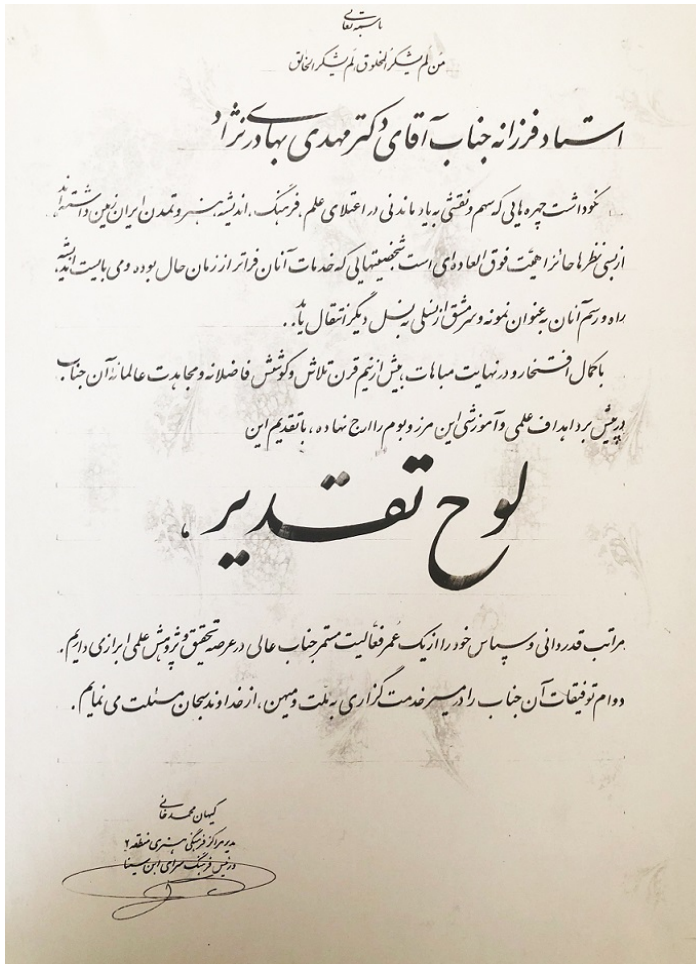 باسمه تعالی
من لم یشکر المخلوق لم یشکر الخالق
استاد فرزانه جناب آقای دکتر مهدی بهادری نژاد
نکوداشت چهره هایی که سهم و نقشی به یاد ماندنی در اعتلای علم، فرهنگ، اندیشه، هنر و تمدن ایران زمین داشته اند
از بسی نظرها حائز اهمیت فوق العاده ای است شخصیتهایی که خدمات آنان فراتر از زمان حال بوده و می بایست اندیشه،
راه و رسم آنان به عنوان نمونه و سرمشق از نسلی به نسل دیگر انتقال یابد..
با کمال افتخار و در نهایت مباهات، بیش از نیم قرن تلاش و کوشش فاضلانه و مجاهدت عالمانه آن جناب
در پیش برد اهداف علمی و آموزشی این مرز و بوم را ارج نهاده، با تقدیم این
لوح تقدیر،
مراتب قدردانی و سپاس خود را از یک عمر فعالیت مستمر جناب عالی در عرصه تحقیق و پژوهش علمی ابراز می داریم.
دوام توفیقات آن جناب را در مسیر خدمت گزاری به ملت و میهن، از خداوند سبحان مسئلت می نمایم.
کیهان محمدخانی
مدیر مراکز فرهنگی هنری منطقه ۶
و رئیس فرهنگ سرای ابن سینا